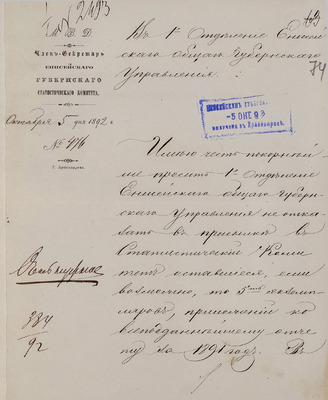 М. В. Д.
Членъ-Секретарь
ЕНИСЕЙСКАГО
ГУБЕРНСКАГО
СТАТИСТИЧЕСКАГО КОМИТЕТА.
Октября 5 дня 1892 г.
№ 416
Г. Красноярскъ.
334
92
Въ 1е Отдѣленіе Енисей
скаго общаго Губернскаго
Управленія.
74
ЕНИСЕЙСКИМЪ ГУБЕРН.
-5 ОКТ 92
Имѣю честь покорнѣй
ше просить 1е Отдѣленіе
Енисейскаго общаго Губерн
скаго Управленія не отка
зать въ присылкѣ въ
Статистическій Коми
тетъ оставшіеся, если
возможно, то 5ть экзем
пляровъ, приложеній ко
всеподданнѣйшему отче
ту за 1891 годъ. Въ